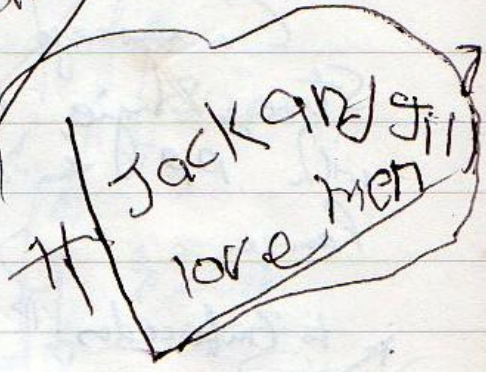 Jack and Jill
love men